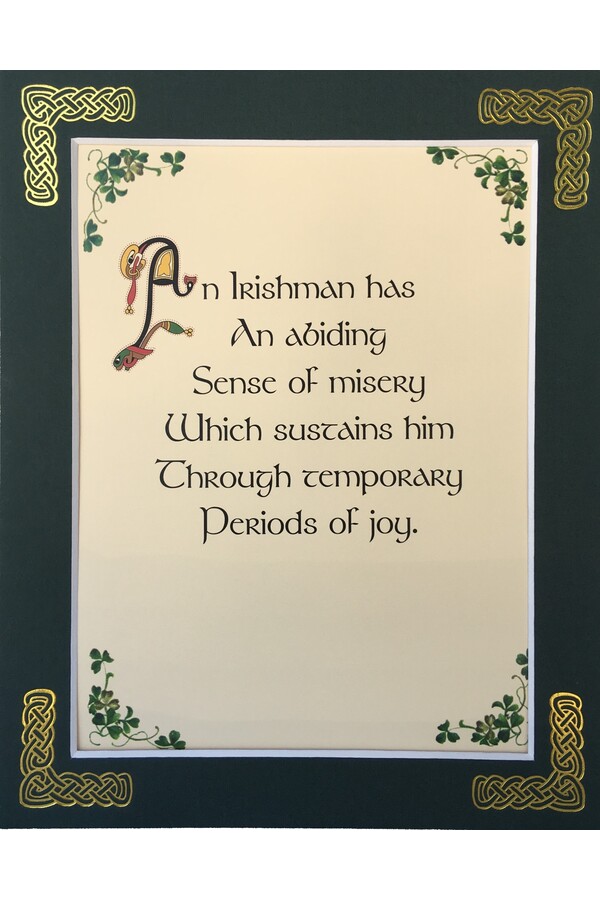 An Irishman has
An abiding
Sense of misery
Which sustains him
Through temporary
Periods of joy.